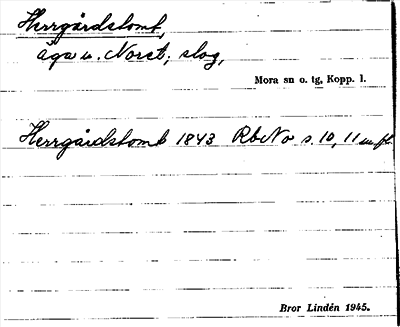 Herrgårdstomt,
äga u. Noret; slog,
Mora sn o. tg, Kopp. l.
Herrgårdstomt 1843 RbNo s. 10, 11 m.fl.
Bror Lindén 1945.